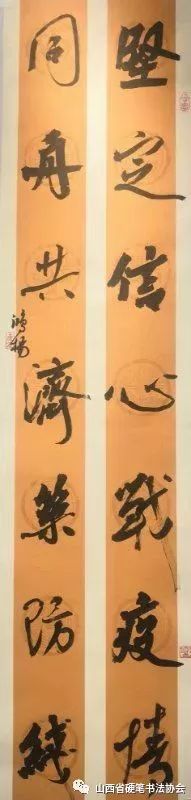 堅定信心戰疫情
同舟共濟築防綫
鴻楊
山西省硬笔书法协会